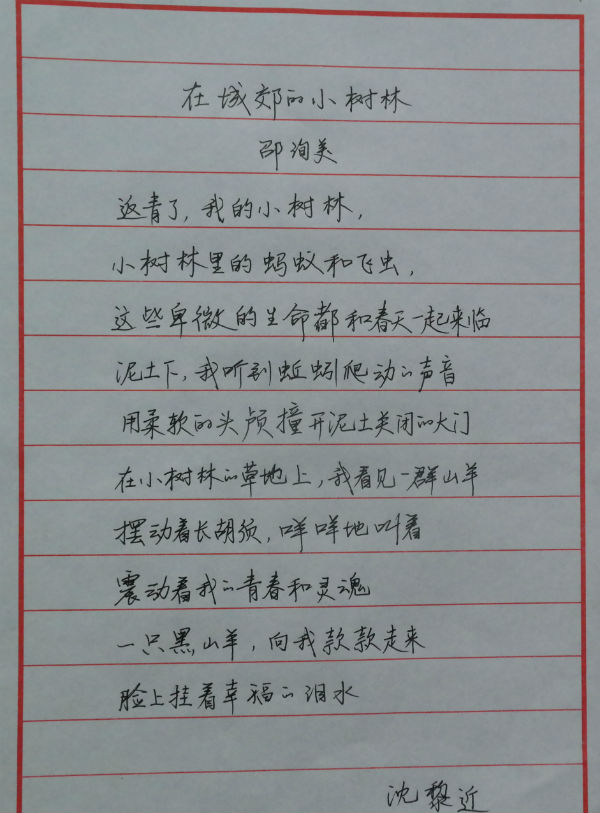 在城郊的小树林
邵洵美
返青了，我的小树林，
小树林里的蚂蚁和飞虫，
这些卑微的生命都和春天一起来临
泥土下，我听到蚯蚓爬动的声音
用柔软的头颅撞开泥土关闭的大门
在小树林的草地上，我看见一群山羊
摆动着长胡须，咩咩地叫着
震动着我的青春和灵魂
一只黑山羊，向我款款走来
脸上挂着幸福的泪水
沈黎近